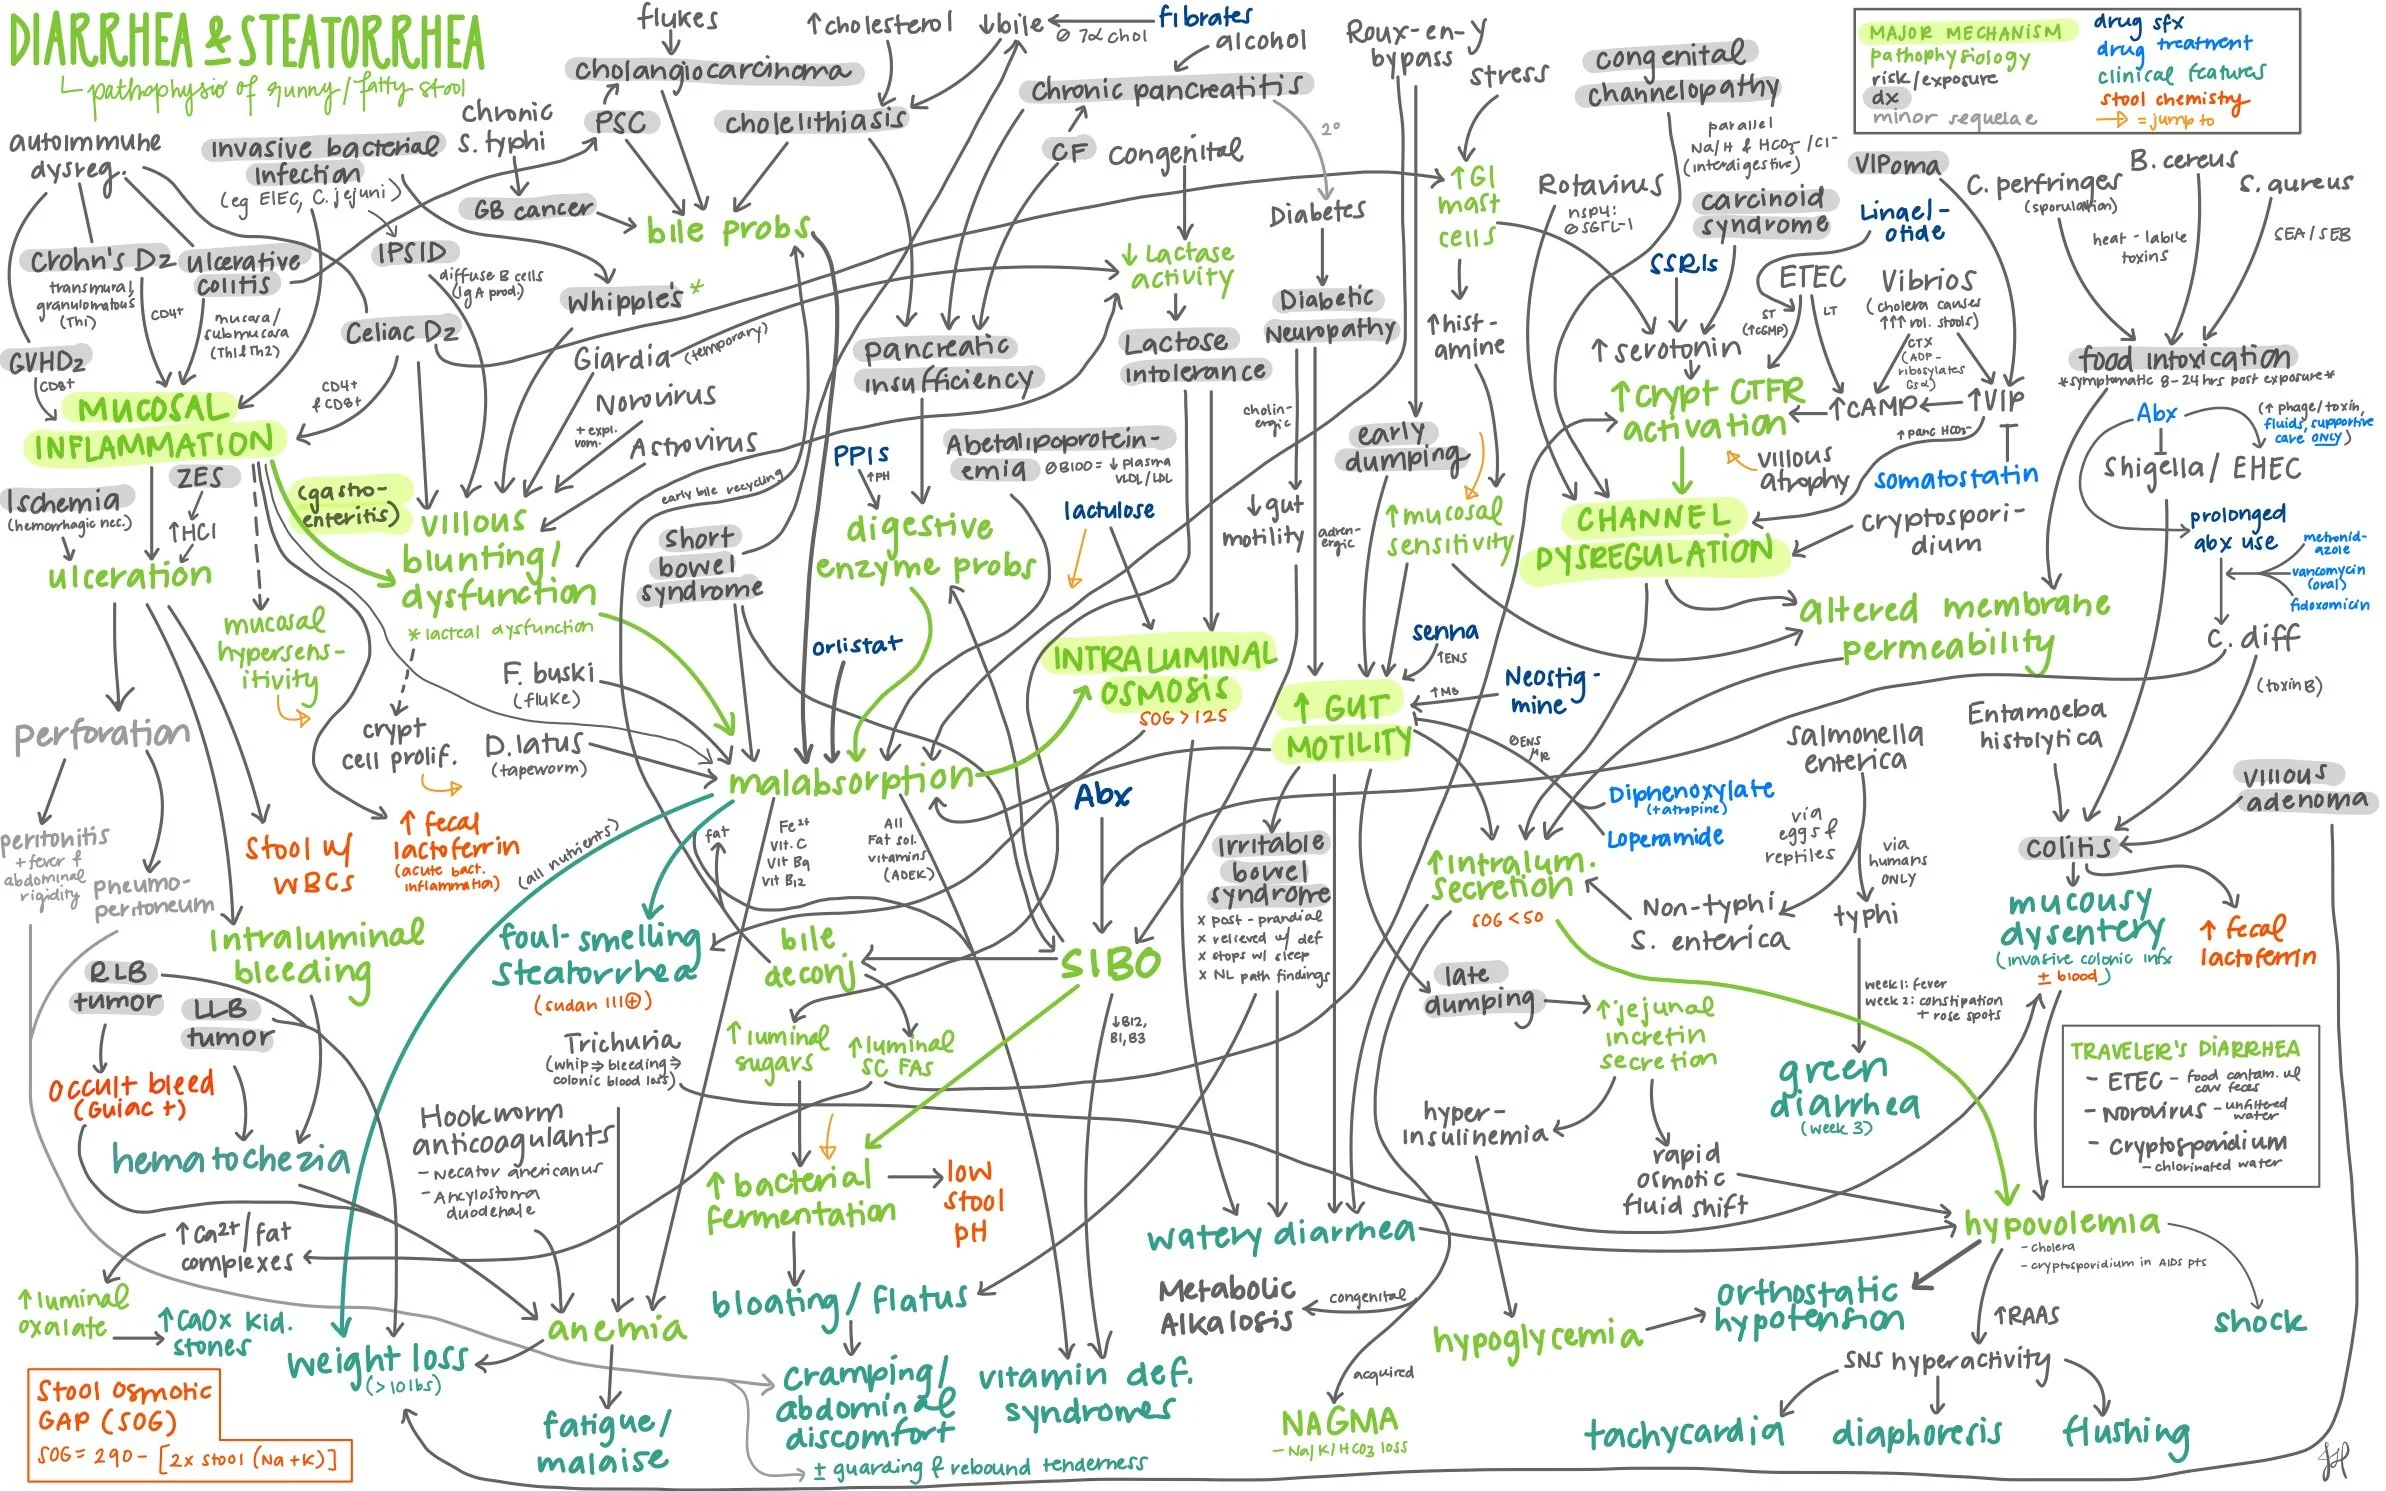 DIARRHEA & STEATORRHEA
pathophysio of runny/fatty stool
MAJOR MECHANISM
pathophysiology
risk/exposure
dx
minor sequelae
drug sfx
drug treatment
clinical features
stool chemistry
= jump to
flukes
cholangiocarcinoma
↑cholesterol
↓bile
⊘ 7α chol
fibrates
alcohol
chronic pancreatitis
Roux-en-y
bypass
stress
congenital
channelopathy
parallel
Na/H & HCO3-/Cl-
(interdigestive)
autoimmune
dysreg.
Invasive bacterial
infection
(eg EIEC, C. jejuni)
Chronic
S. typhi
PSC
cholelithiasis
CF
Congenital
2°
GB cancer
bile probs
Diabetes
↑GI
mast
cells
Rotavirus
nsp4:
⊘SGTL-1
carcinoid
syndrome
VIPoma
Linacl-
otide
C. perfringes
(sporulation)
B. cereus
S. aureus
heat-labile
toxins
SEA/SEB
Crohn's Dz
transmural,
granulomatous
(Th1)
CD4+
ulcerative
colitis
mucosa/
submucosa
(Th1&Th2)
IPSID
diffuse B cells
(IgA prod.)
Whipple's *
↓Lactase
activity
SSRIs
ETEC
ST
(↑cGMP)
LT
Vibrios
(cholera causes
↑↑↑ vol. stools)
CTX
(ADP-
ribosylates
Gsα)
GVHDz
CD8+
Celiac Dz
CD4+
& CD8+
Giardia
(temporary)
pancreatic
insufficiency
Lactose
intolerance
Diabetic
Neuropathy
↑hist-
amine
↑serotonin
food intoxication
*symptomatic 8-24hrs post exposure*
MUCOSAL
INFLAMMATION
Norovirus
+ expl.
vom.
Astrovirus
Abetalipoprotein-
emia
⊘B100 = ↓ plasma
VLDL/LDL
cholin-
ergic
early
dumping
↑crypt CTFR
activation
↑cAMP
↑VIP
↑panc HCO3-
Abx
(↑ phage/toxin,
fluids, supportive
care ONLY)
Shigella/ EHEC
villous
atrophy
somatostatin
Ischemia
(hemorrhagic nec.)
ZES
↑HCl
(gastro-
enteritis)
villous
blunting/
dysfunction
* lacteal dysfunction
early bile recycling
PPIs
↑pH
digestive
enzyme probs
short
bowel
syndrome
lactulose
↓gut
motility
adren-
ergic
↑mucosal
sensitivity
CHANNEL
DYSREGULATION
cryptospori-
dium
prolonged
abx use
metronid-
azole
vancomycin
(oral)
fidoxomicin
ulceration
mucosal
hypersens-
itivity
altered membrane
permeability
C. diff
(toxin B)
F. buski
(fluke)
orlistat
INTRALUMINAL
OSMOSIS
SOG > 125
senna
↑ENS
Neostig-
mine
↑MB
↑ GUT
MOTILITY
perforation
crypt
cell prolif.
D. latus
(tapeworm)
malabsorption
⊘ENS
μR
Diphenoxylate
(+atropine)
Loperamide
Salmonella
enterica
Entamoeba
histolytica
villous
adenoma
peritonitis
+ fever &
abdominal
rigidity
pneumo-
peritoneum
Stool w/
WBCs
↑ fecal
lactoferrin
(acute bact.
inflammation)
(all nutrients)
fat
Fe2+
Vit. C
Vit B9
Vit B12
All
Fat sol.
vitamins
(ADEK)
Abx
Irritable
bowel
syndrome
x post-prandial
x relieved w/ def
x stops w/ sleep
x NL path findings
↑intralum.
secretion
SOG < 50
via
eggs &
reptiles
via
humans
ONLY
Non-typhi
S. enterica
typhi
colitis
mucousy
dysentery
(invasive colonic infx
± blood)
↑ fecal
lactoferrin
Intraluminal
bleeding
foul-smelling
steatorrhea
(sudan III⊕)
bile
deconj
SIBO
↓B12,
B1, B3
late
dumping
week1: fever
week 2: constipation
+ rose spots
RLB
tumor
LLB
tumor
Trichuria
(whip⇒bleeding⇒
colonic blood loss)
↑luminal
sugars
↑luminal
SC FAs
↑jejunal
incretin
secretion
green
diarrhea
(week 3)
TRAVELER'S DIARRHEA
- ETEC - food contam. w/
cow feces
- Norovirus - unfiltered
water
- Cryptosporidium
- chlorinated water
Occult bleed
(Guiac +)
Hookworm
anticoagulants
- Necator americanus
- Ancylostoma
duodenale
hyper-
insulinemia
rapid
osmotic
fluid shift
hematochezia
↑ bacterial
fermentation
low
stool
pH
watery diarrhea
hypovolemia
- cholera
- cryptosporidium in AIDS pts
↑Ca2+/fat
complexes
↑luminal
oxalate
↑CaOx kid.
stones
bloating/flatus
Metabolic
Alkalosis
congenital
orthostatic
hypotension
↑RAAS
shock
weight loss
(>10lbs)
anemia
hypoglycemia
SNS hyperactivity
cramping/
abdominal
discomfort
vitamin def.
syndromes
acquired
NAGMA
- Na/K/HCO3 loss
tachycardia
diaphoresis
flushing
fatigue/
malaise
± guarding & rebound tenderness
Stool Osmotic
GAP (SOG)
SOG = 290 - [2x stool (Na+K)]